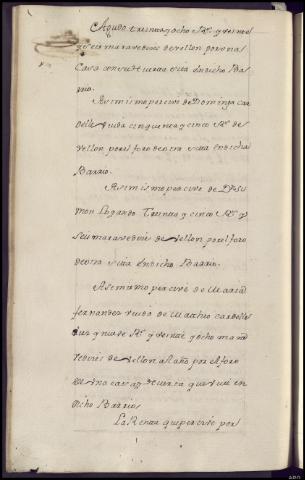 Agudo treinta y ocho Rs. y veinte
y seis maravedises de vellon por una
Casa con su Huerta sita en dicho Ba
rrio.
Asimismo percive de Dominga Car
delle viuda cinquenta y cinco Rs. de
vellon por el foro de otra sita en dicha
Barrio.
Asimismo percive de Dn. Si
mon Logardo Treinta y cinco Rs. y
seis maravedises de vellon por el foro
de otra sita en dicho Barrio.
Asimismo percive de Maria
fernandez viuda de Mathio Cardelle
diez y nueve Rs. y veinte y ocho mara
vedises de vellon al año por el foro
de una casa y Huerta que vive en
dicho Barrio
La Renta que percive por